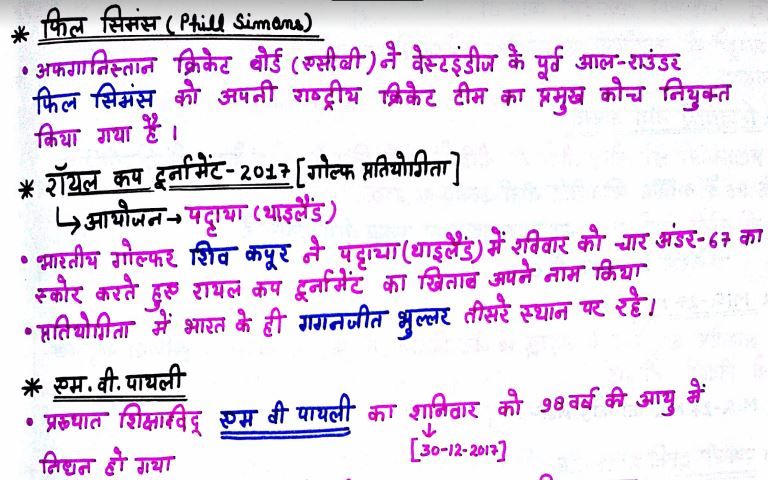 * फिल सिमंस (Phill Simons)
• अफगानिस्तान क्रिकेट बोर्ड (एसीबी) ने वेस्टइंडीज के पूर्व आल-राउंडर
फिल सिमंस को अपनी राष्ट्रीय क्रिकेट टीम का प्रमुख कोच नियुक्त
किया गया है ।
* रॉयल कप टूर्नामेंट-2017 [गोल्फ प्रतियोगिता]
↳ आयोजन → पट्टाया (थाइलैंड)
• भारतीय गोल्फर शिव कपूर ने पट्टाया (थाइलैंड) में रविवार को चार अंडर-67 का
स्कोर करते हुए रायल कप टूर्नामेंट का खिताब अपने नाम किया
• प्रतियोगिता में भारत के ही गगनजीत भुल्लर तीसरे स्थान पर रहे।
* एम.वी.पायली
• प्रख्यात शिक्षाविद् एम वी पायली का शनिवार को 98 वर्ष की आयु में
[30-12-2017]
निधन हो गया